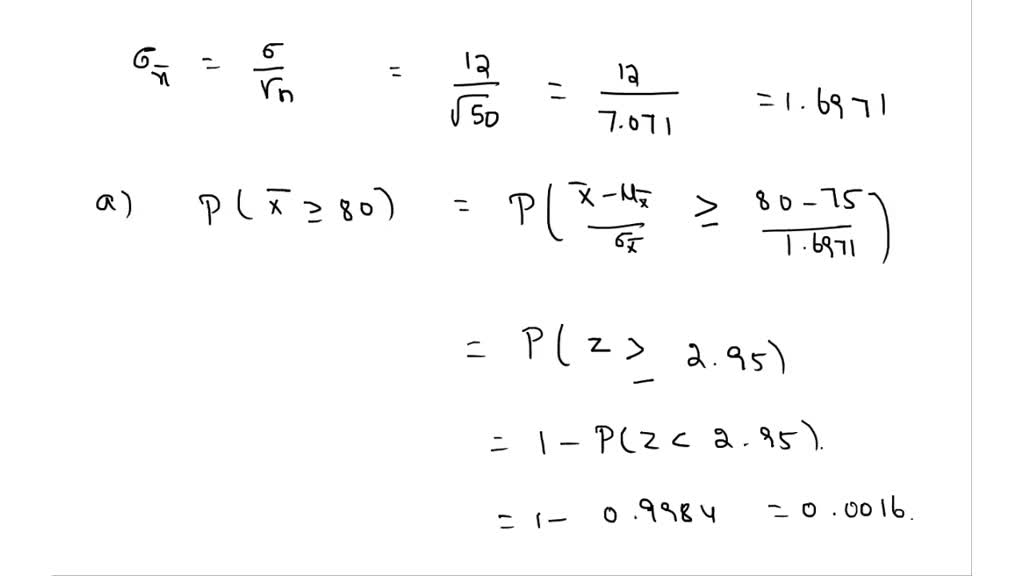 σx̄ = σ/√n = 12/√50 = 12/7.071 = 1.6971
a) P(x̄ ≥ 80) = P(x̄ - μx̄/σx̄ ≥ 80 - 75/1.6971)
= P(z ≥ 2.95)
= 1 - P(z < 2.95).
= 1 - 0.9984 = 0.0016.